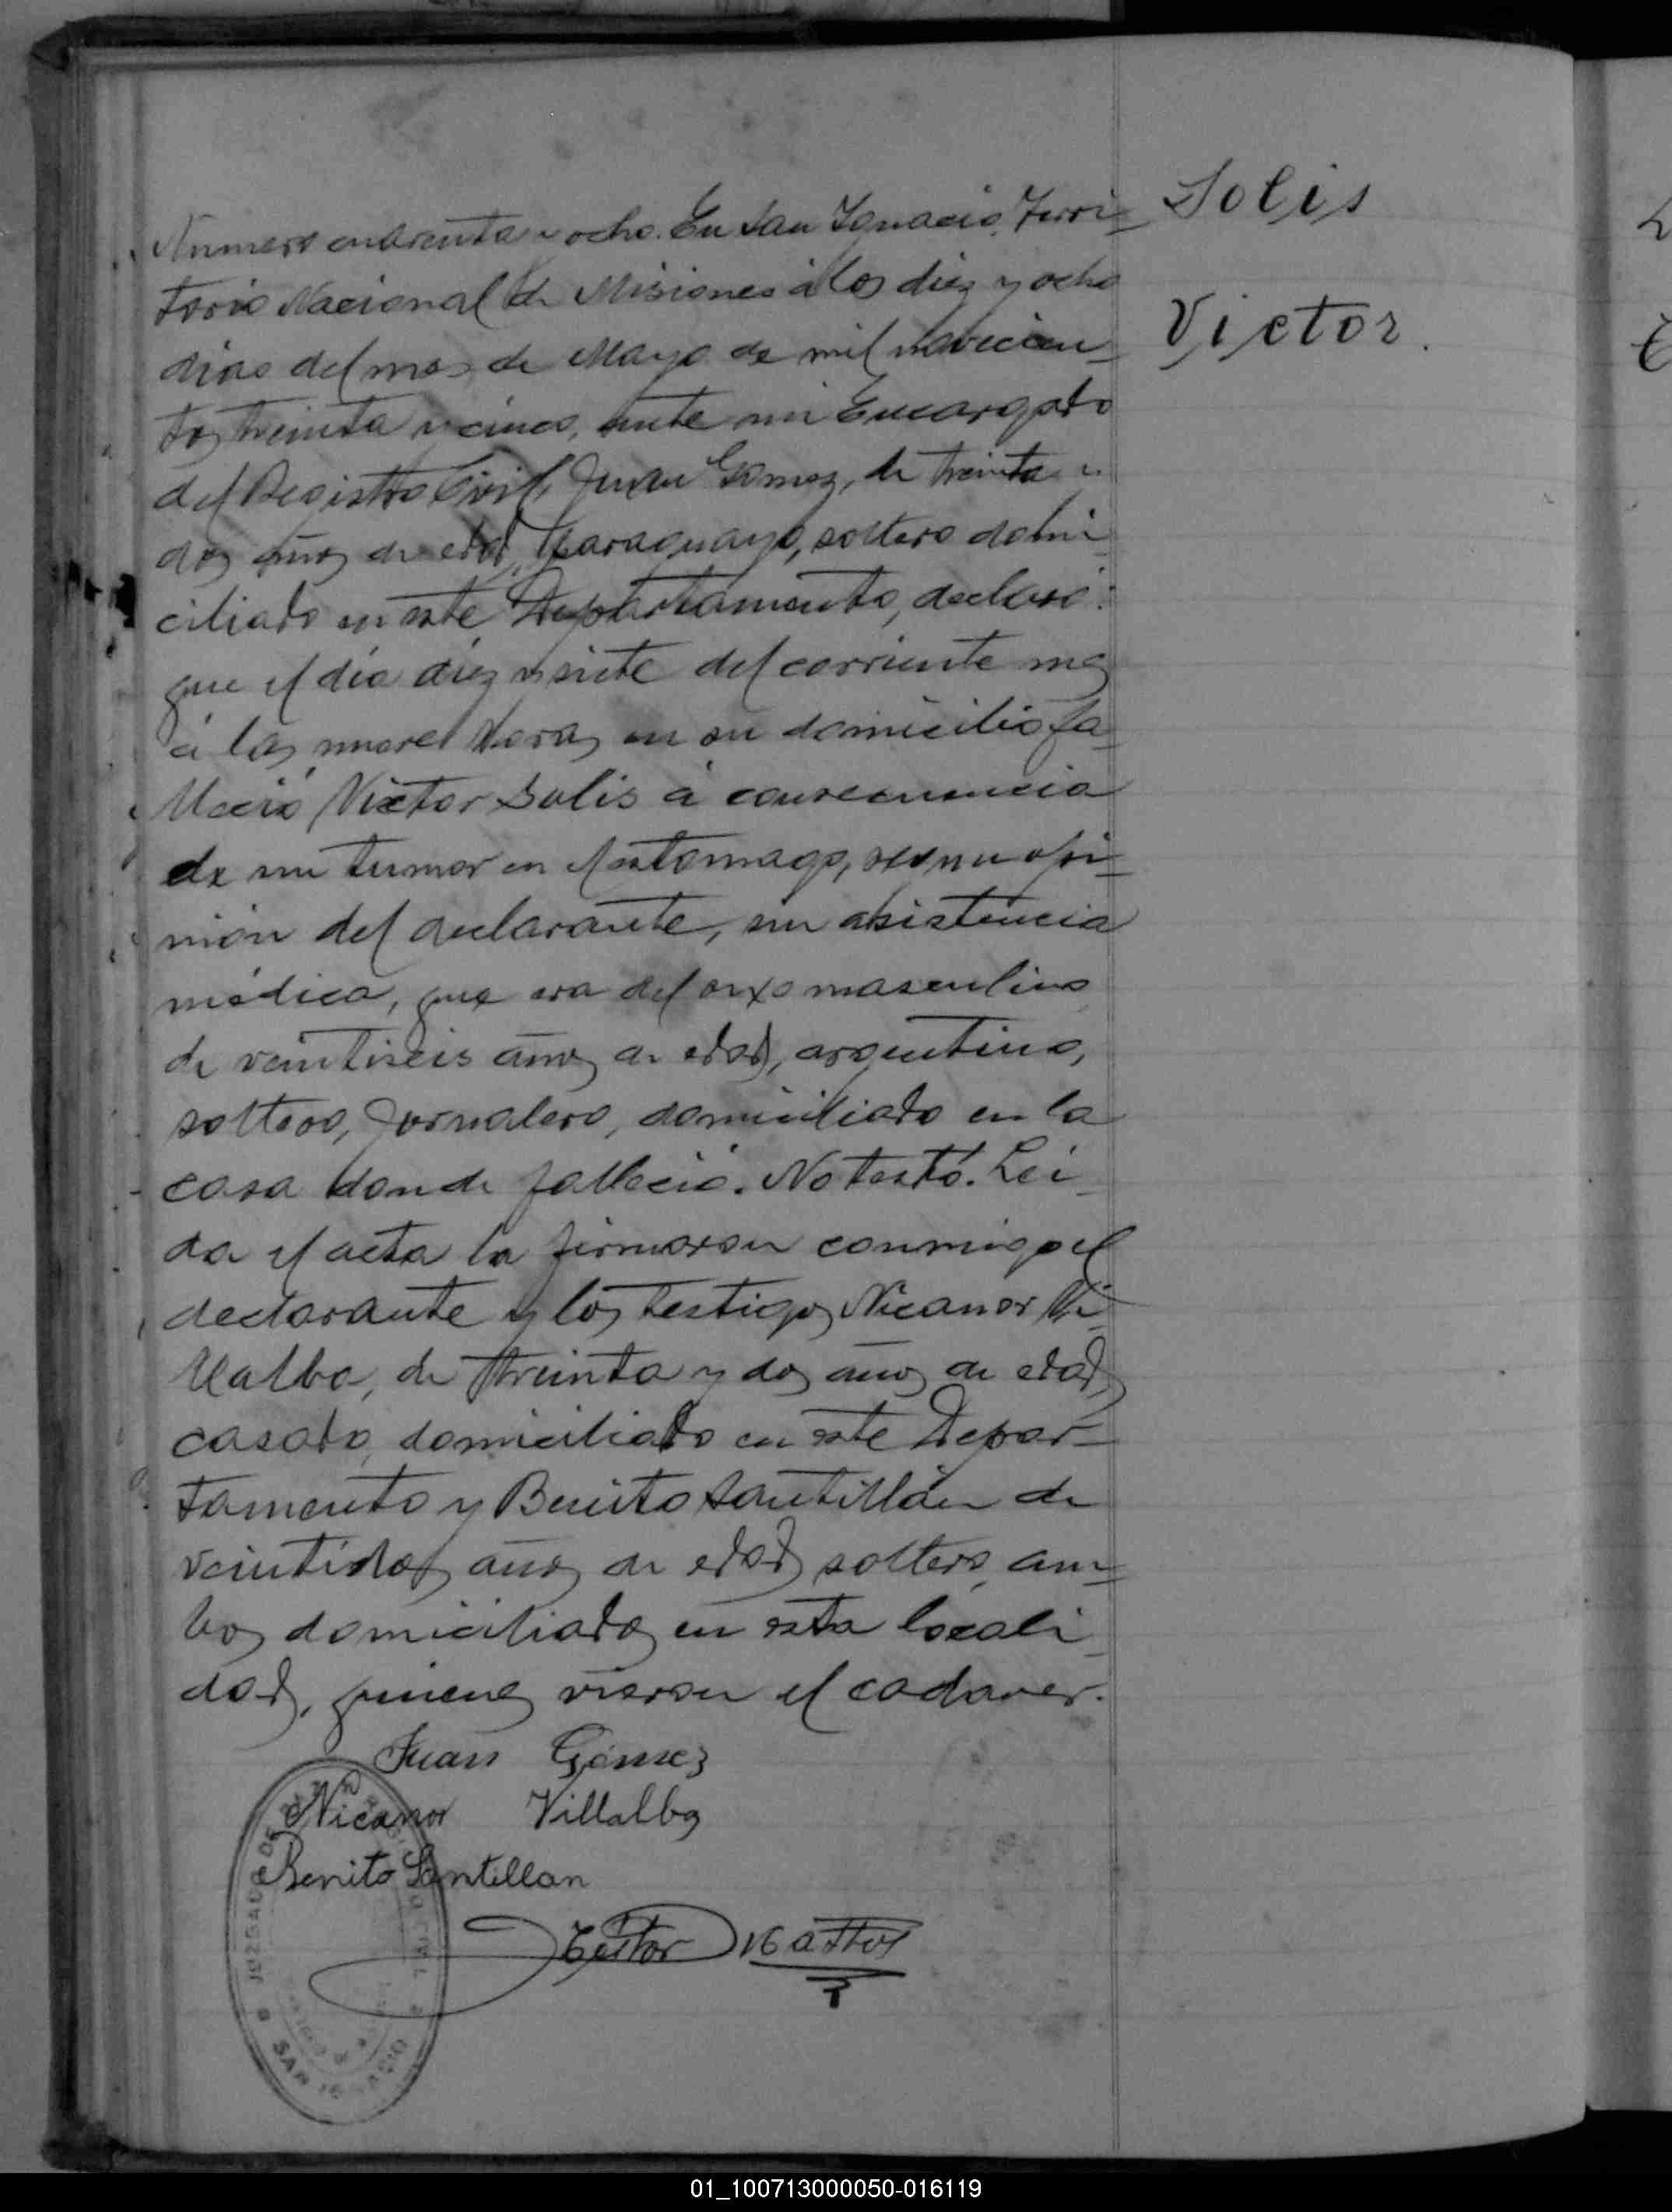 Solis
Victor.
Numero cuarenta y ocho. En San Ignacio, Terri-
torio Nacional de Misiones á los diez y ocho
dias del mes de Mayo de mil novecien-
tos treinta y cinco, ante mi Encargado
del Registro Civil, Juan Gomez, de treinta y
dos años de edad, paraguayo, soltero domi-
ciliado en este Departamento, declaró:
que el día diez y siete del corriente mes
á las nueve horas en su domicilio fa-
lleció Victor Solis á consecuencia
de un tumor en el estomago, segun opi-
nión del declarante, sin asistencia
médica, que era del sexo masculino
de veintiseis años de edad, argentino,
soltero, jornalero, domiciliado en la
casa donde falleció. No testó. Lei-
da el acta la firmaron conmigo el
declarante y los testigos Nicanor Vi-
llalba, de treinta y dos años de edad,
casado, domiciliado en este Depar-
tamento y Benito Santillán de
veintidos años de edad soltero, am-
bos domiciliados en esta locali-
dad, quienes vieron el cadaver.
Juan Gómez
Nicanor Villalba
Benito Santillan
JUZGADO DE
SAN IGNACIO
01_100713000050-016119